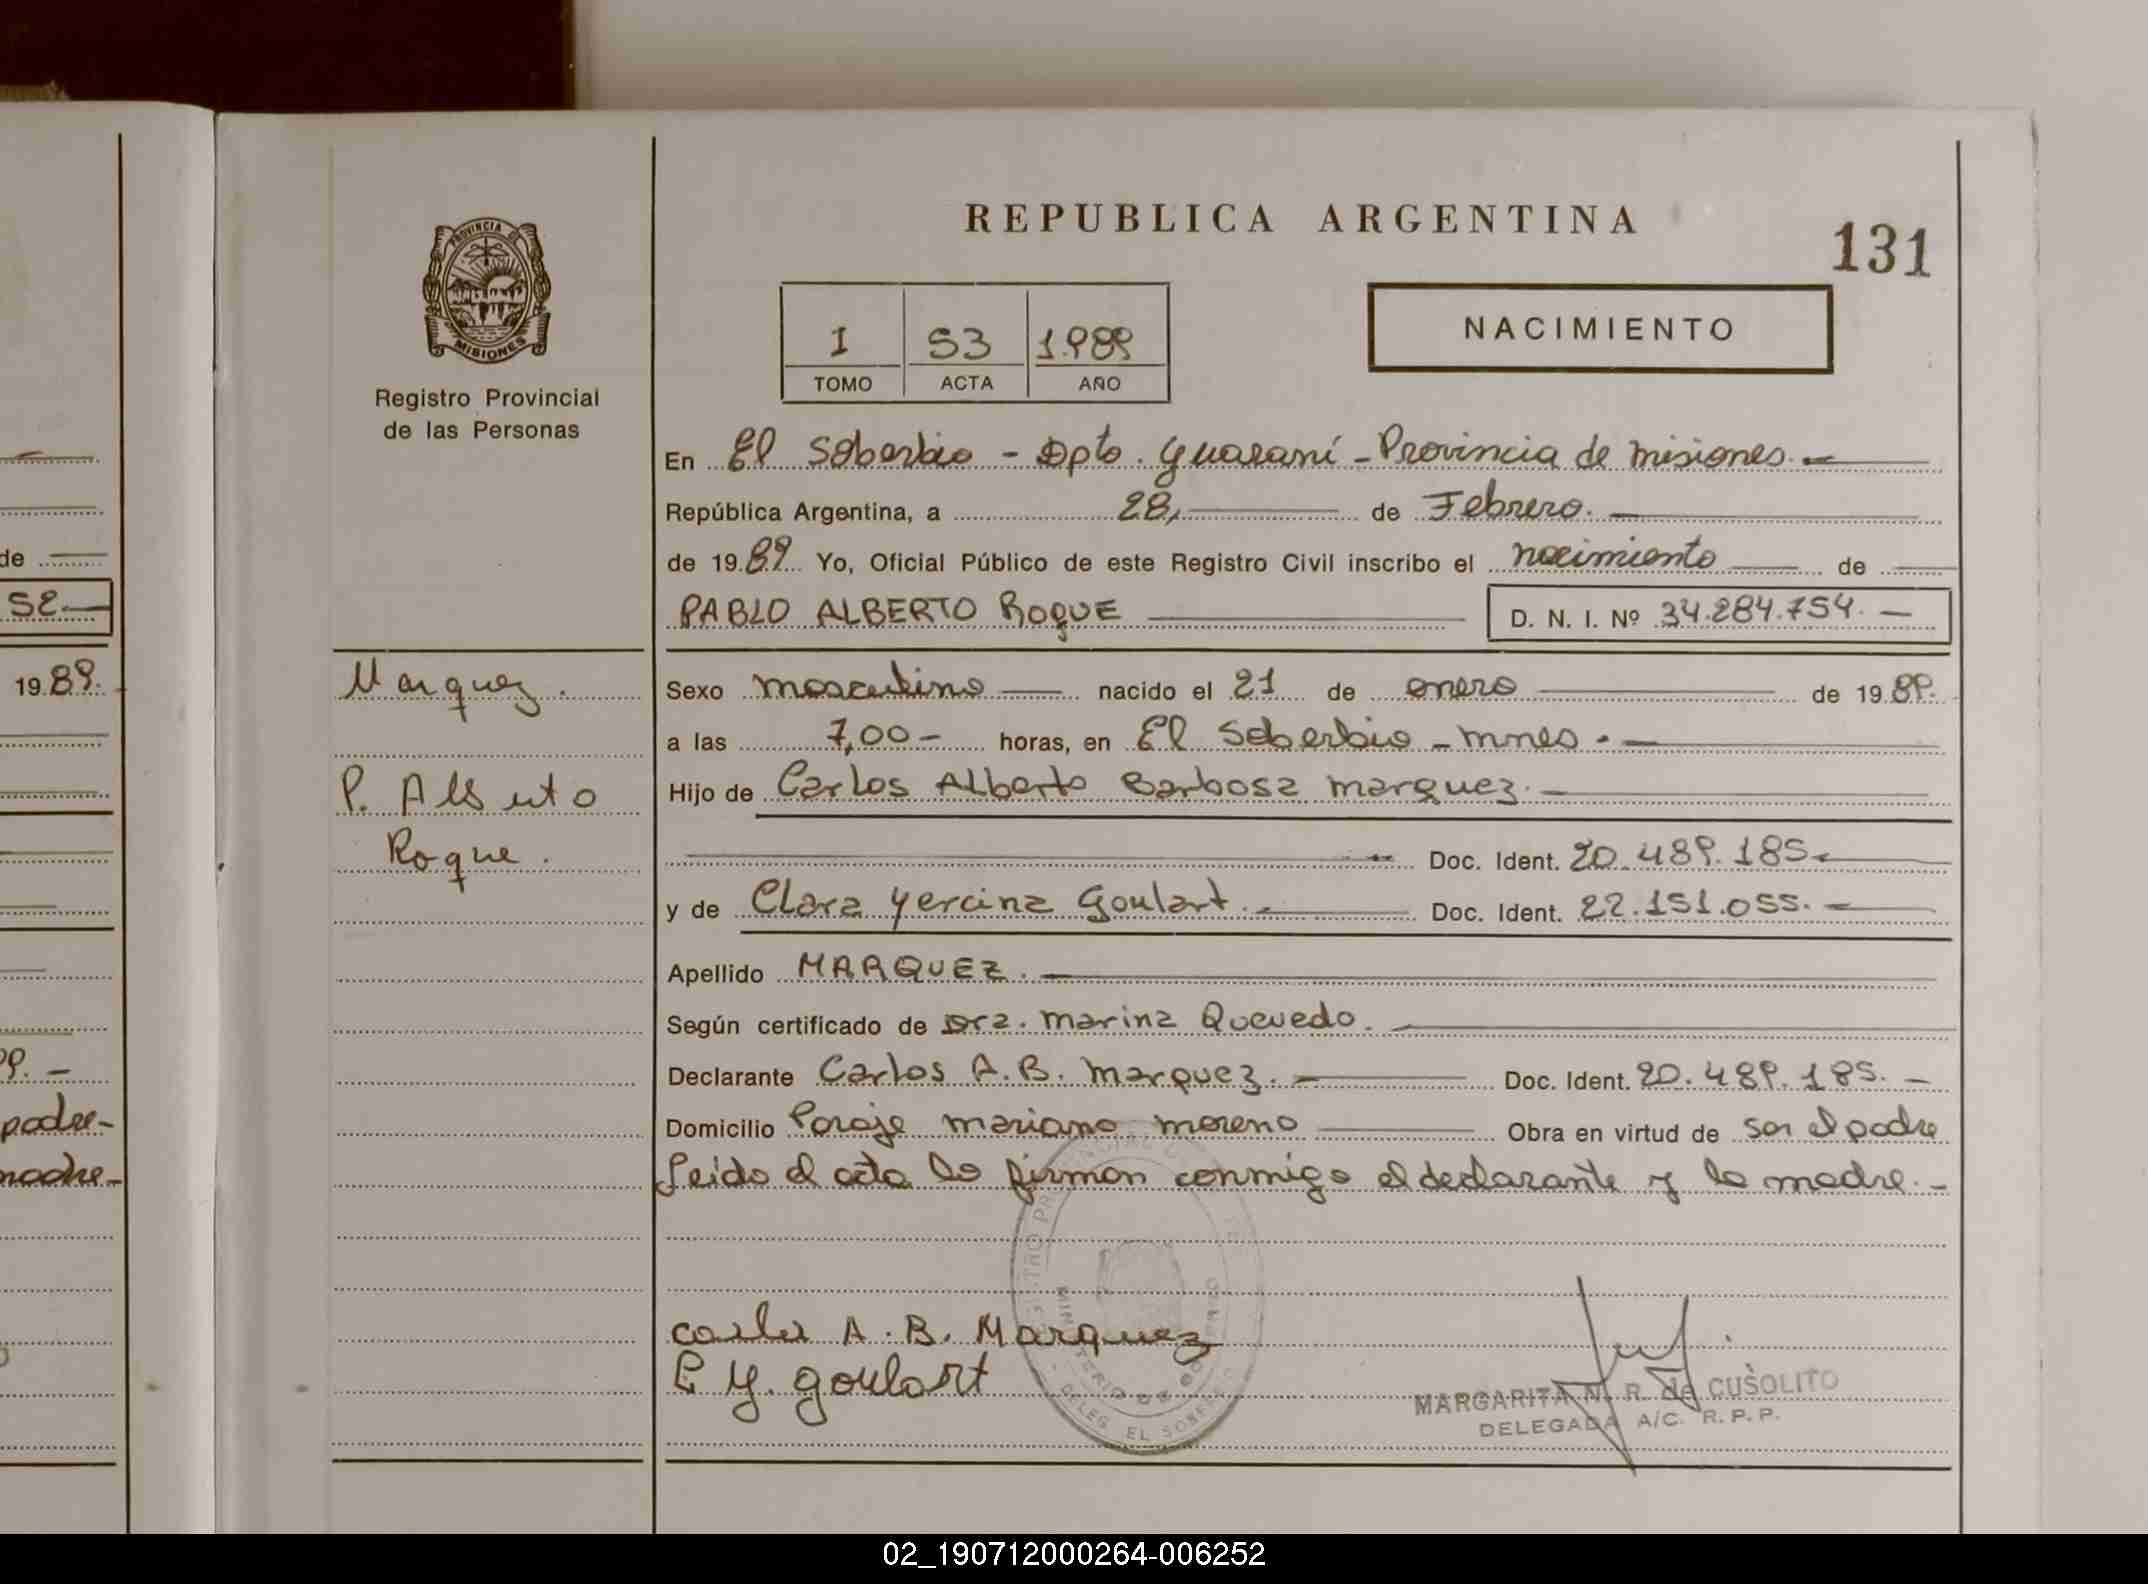 REPUBLICA ARGENTINA
131
PROVINCIA DE
MISIONES
Registro Provincial
de las Personas
1 53 1.989
TOMO ACTA AÑO
NACIMIENTO
En El Soberbio - Dpto. Guaraní - Provincia de Misiones. -
República Argentina, a 28, de Febrero.
de 19 89 Yo, Oficial Público de este Registro Civil inscribo el nacimiento de
PABLO ALBERTO ROQUE D. N. I. Nº 34.284.754. -
de
52
19 89.
padre-
madre-
Marquez.
P. Alberto
Roque.
Sexo masculino nacido el 21 de enero de 19 89.
a las 7,00 - horas, en El Soberbio - Mnes. -
Hijo de Carlos Alberto Barbosa Marquez. -
Doc. Ident. 20.489.185. -
y de Clara Yercina Goulart. - Doc. Ident. 22.151.055. -
Apellido MARQUEZ. -
Según certificado de Dra. Marina Quevedo.
Declarante Carlos A. B. Marquez. - Doc. Ident. 20.489.185. -
Domicilio Paraje Mariano Moreno Obra en virtud de ser el padre
Leido el acta lo firman conmigo el declarante y la madre. -
Carlos A. B. Marquez
C Y. Goulart
MARGARITA N. R. de CUSOLITO
DELEGADA A/C. R. P. P.
DELEG EL SOBERBIO
02_190712000264-006252